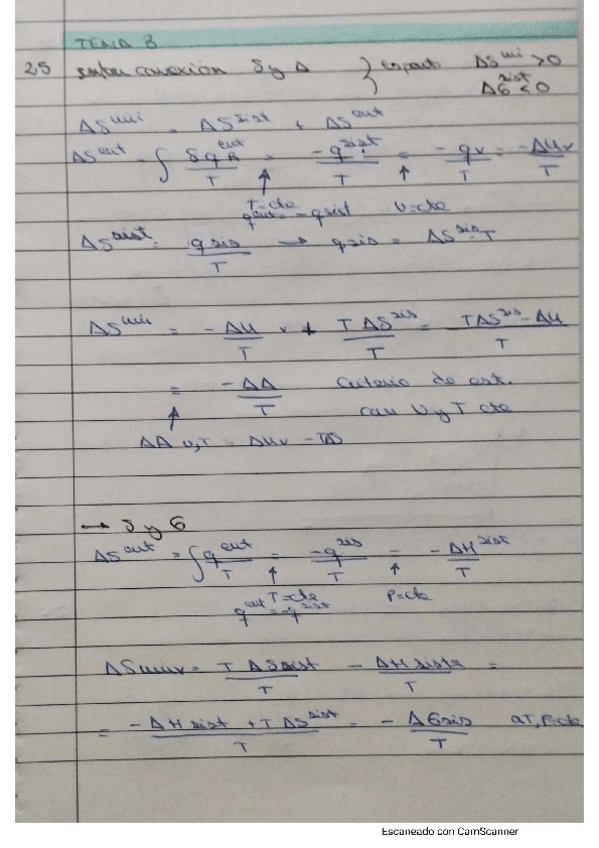 TEMA 3
25 conexión S y A } espont ΔS^uni > 0
ΔG^sist < 0
ΔS^uni = ΔS^sist + ΔS^out
ΔS^out = ∫ δq_R^out / T = -q^sist / T = -q_v / T = -ΔU_v / T
T=cte V=cte
q^out = -q^sist
ΔS^sist = q sis / T → q sis = ΔS^sis T
ΔS^uni = -ΔU / T v + T ΔS^sis / T = TΔS^sis - ΔU / T
= -ΔA / T Criterio de est.
con V y T cte
ΔA v,T = ΔU v - TΔS
→ S y G
ΔS^out = ∫ q^out / T = -q^sis / T = -ΔH^sist / T
T=cte P=cte
q^out = -q^sist
ΔS univ = T ΔS sist / T - ΔH siste / T =
= -ΔH sist + T ΔS^sist / T = - ΔG sis / T a T, P=cte
Escaneado con CamScanner